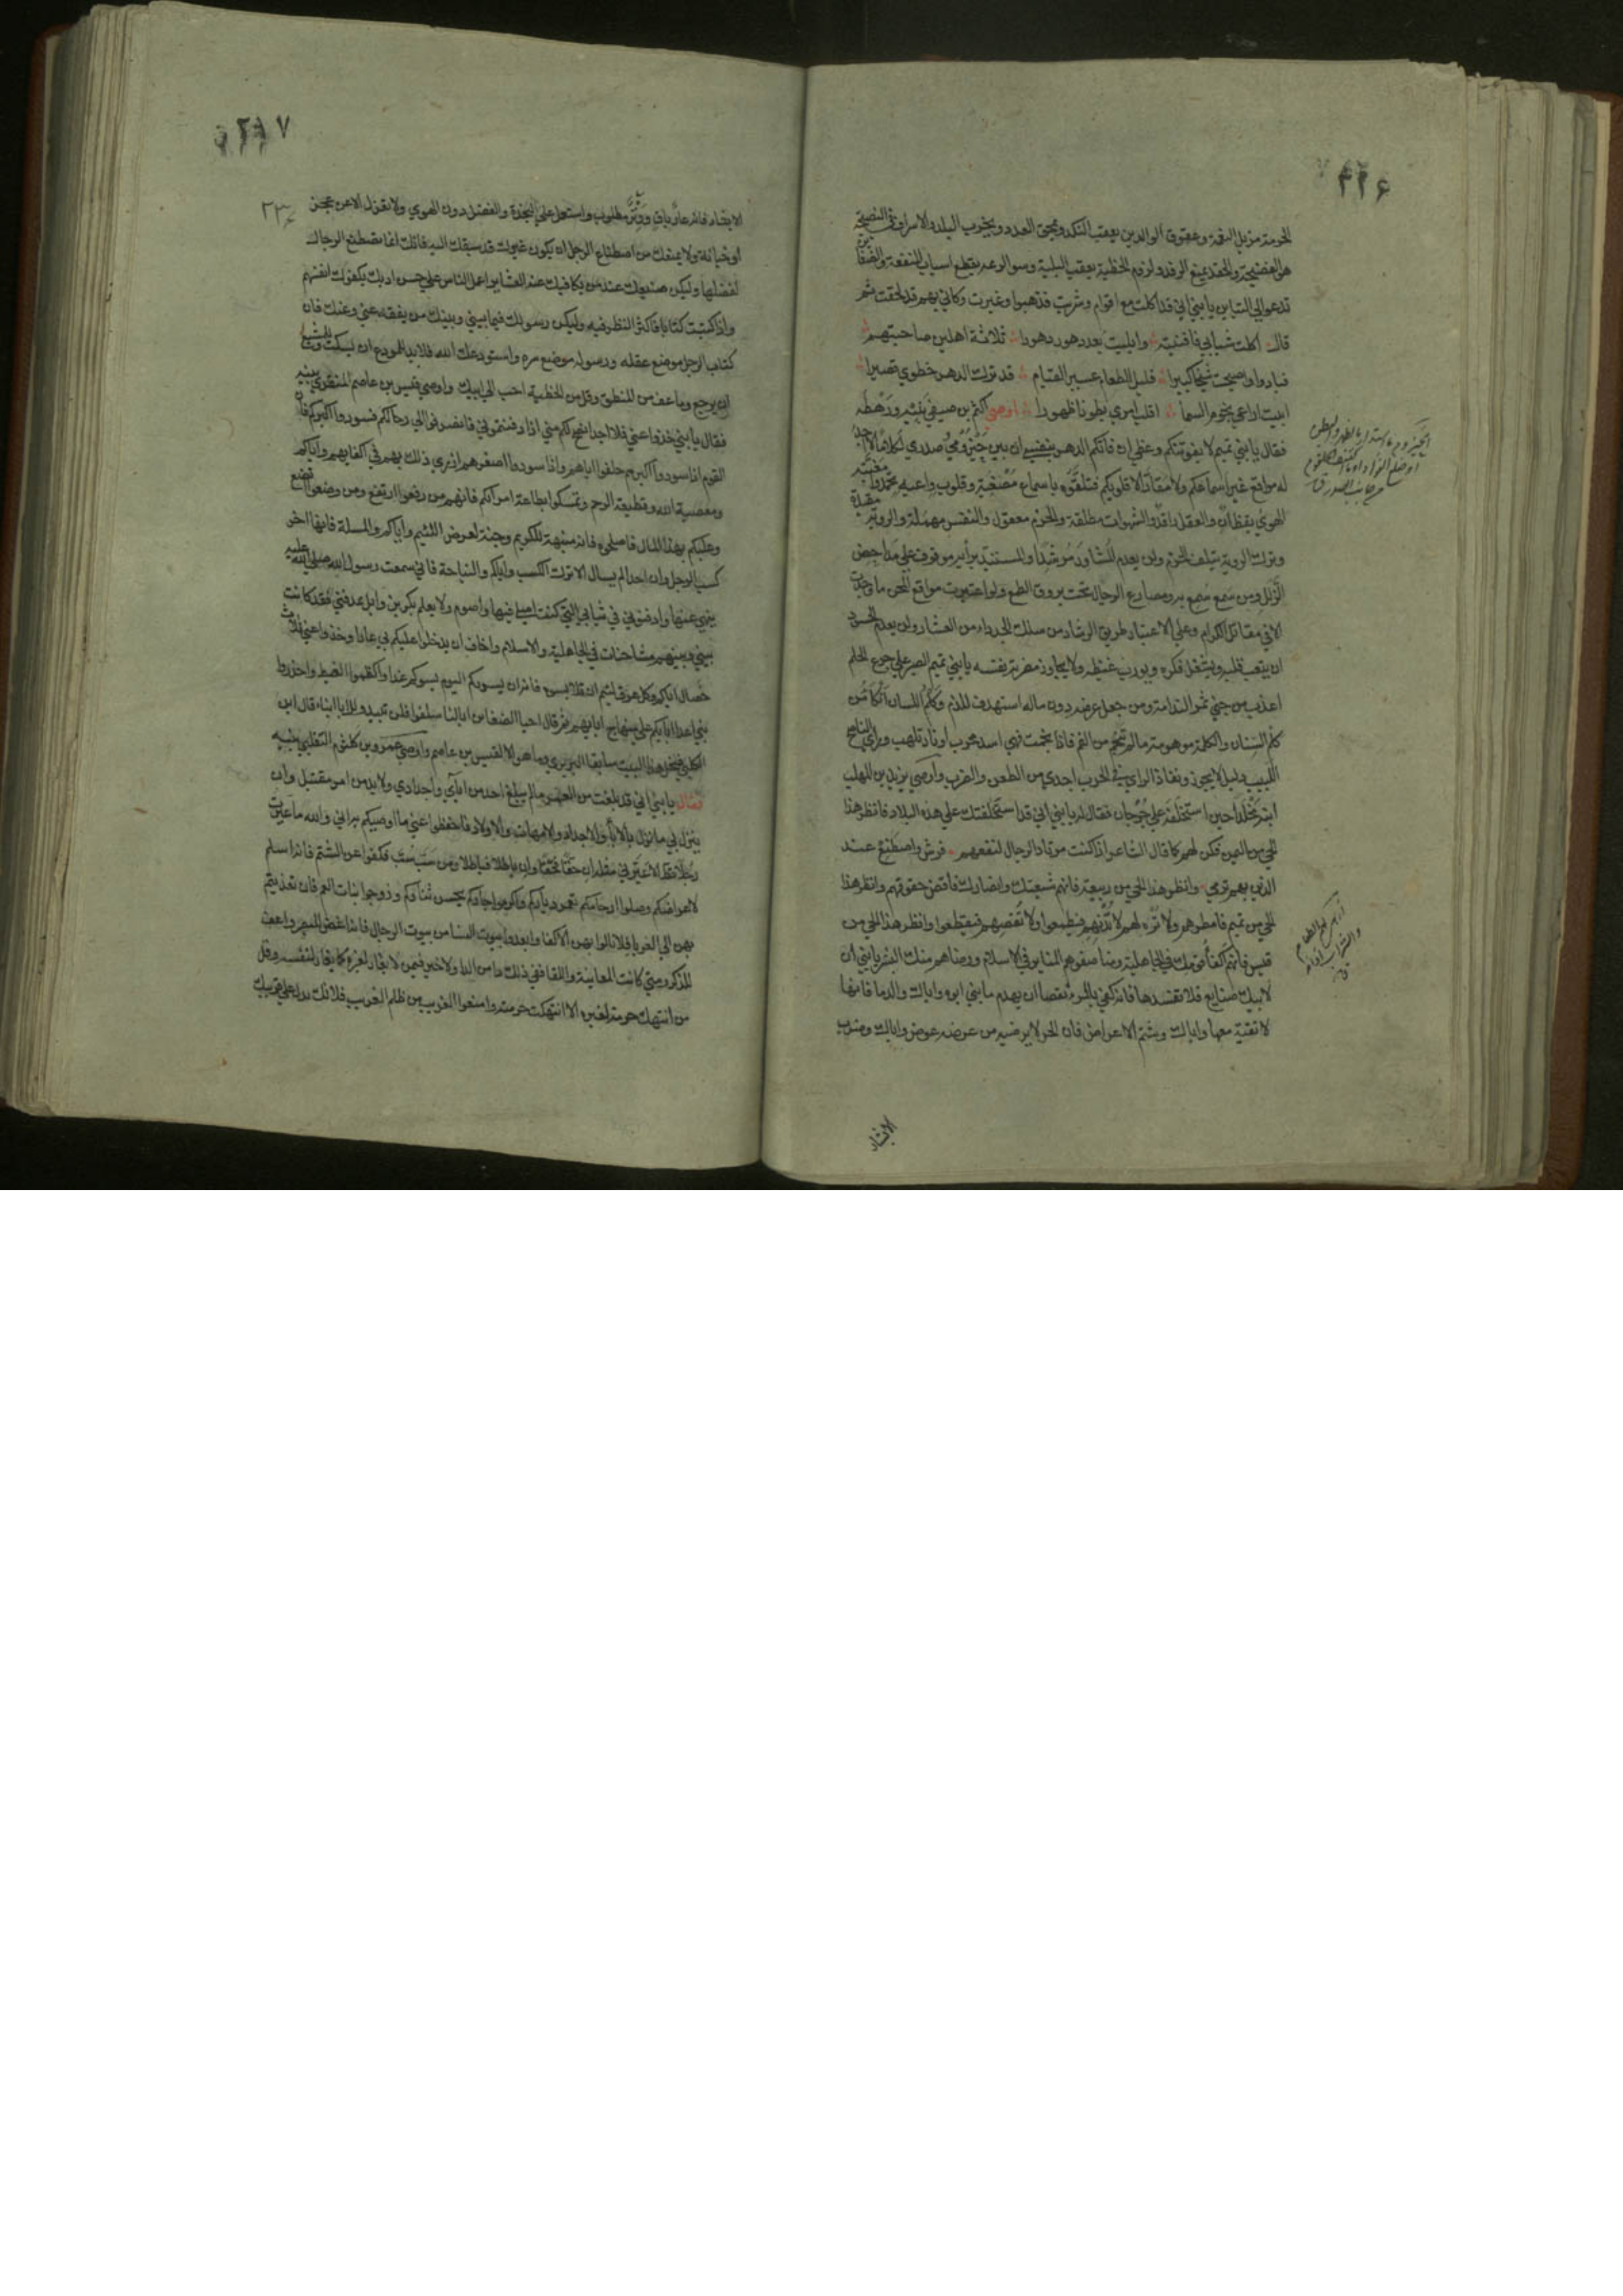 ٤٢٦
الحرمة مزيل النعمة وعقوق الوالدين يعقب النكد ويمحق العدد ويخرب البلد والاسراف في النصيحة
هو الفضيحة والحقد يمنع الرفد ولزوم الخطية يعقب البلية وسو الرعه يقطع اسباب المنفعة والضغاين
تدعو الى التباين يا بني اني قد اكلت مع اقوام وشربت فذهبوا وغبرت وكاني بهم قد لحقت ثم
قال اكلت شبابي فافنيته وابليت بعد دهور دهورا ثلاثة اهلين صاحبتهم
فبادوا واصبحت شيخا كبيرا قليل الطعام عسير القيام قد ترك الدهر خطوي قصيرا
ابيت اراعي نجوم السما اقلب امري بطونا ظهورا اوصى اكثم بن صيفي بنيه ورهطه
فقال يا بني تميم لا يفوتنكم وعظي ان فاتكم الدهر بنفسي ان بين حيزومي وصدري لكلاما لا اجد
له مواقع غير اسماعكم ولا مقار الا قلوبكم فتلقوه باسماع مصغية وقلوب واعية تحمدوا مغبته
الهوى يقظان والعقل راقد والشهوات مطلقة والحزم معقول والنفس مهملة والروية مقيدة
وبترك الروية يتلف الحزم ولن يعدم المشاور مرشدا والمستبد برايه موقوف على مداحض
الزلل ومن سمع سمع به ومصارع الرجال تحت بروق الطمع ولو اعتبرت مواقع المحن ما وجدت
الا في مقاتل الكرام وعلى الاعتبار طريق الرشاد من سلك الجدد امن العثار ولن يعدم الحسود
ان يتعب قلبه ويشغل فكره ويورث غيظه ولا يجاوز مضرته نفسه يا بني تميم الصبر على جرع الحلم
اعذب من جني ثمر الندامة ومن جعل عرضه دون ماله استهدف للذم وكلم اللسان انكا من
كلم السنان والكلمة مرهونة ما لم تنجم من الفم فاذا نجمت فهي اسد محرب او نار تلهب وراي الناصح
اللبيب دليل لا يجوز ونفاذ الراي في الحرب اجدى من الطعن والضرب واوصى يزيد بن المهلب
ابنه مخلدا حين استخلفه على جرجان فقال له يا بني اني قد استخلفتك على هذه البلاد فانظر هذا
الحي من اليمن فكن لهم كما قال الشاعر اذا كنت مرتاد الرجال لنفعهم فرش واصطنع عند
الذين بهم ترمي وانظر هذا الحي من ربيعة فانهم شيعتك وانصارك فاقض حقوقهم وانظر هذا
الحي من تميم فامطرهم ولا تزه لهم لا تدنهم فيطمعوا ولا تقصهم فيقطعوا وانظر هذا الحي من
قيس فانهم اكفا قومك في الجاهلية ومناصفوهم المنابر في الاسلام ورضاهم منك البشر يا بني ان
لابيك صنايع فلا تفسدها فانه كفى بالمرء نقصا ان يهدم ما بنى ابوه واياك والدما فانها
لا تقية معها واياك وشتم الاعراض فان الحر لا يرضيه من عرضه عوض واياك وضرب
الابشار
٤١٧
٢٣٠
الابشار فانه عار باق ووتر مطلوب واستعمل على النجدة والفضل دون الهوى ولا تعزل الا عن عجز
او خيانة ولا يمنعك من اصطناع الرجل ان يكون غيرك قد سبقك اليه فانك انما تصطنع الرجال
لفضلها وليكن صنيعك عند من يكافيك عند العشاير احمل الناس على حسن ادبك يكفوك انفسهم
واذا كتبت كتابا فاكثر النظر فيه وليكن رسولك فيما بيني وبينك من يفقه عني وعنك فان
كتاب الرجل موضع عقله ورسوله موضع سره واستودعك الله فلا بد للمودع ان يسكت وللمشيع
ان يرجع وما عف من المنطق وقل من الخطية احب الى ابيك واوصى قيس بن عاصم المنقري بنيه
فقال يا بني خذوا عني فلا احد انصح لكم مني اذا دفنتموني فانصرفوا الى رحالكم فسودوا اكبركم فان
القوم اذا سودوا اكبرهم خلفوا اباهم واذا سودوا اصغرهم ازرى ذلك بهم في اكفايهم واياكم
ومعصية الله وقطيعة الرحم وتمسكوا بطاعة امرائكم فانهم من رفعوا ارتفع ومن وضعوا اتضع
وعليكم بهذا المال فاصلحوه فانه منبهة للكريم وجنة لعرض اللئيم واياكم والمسلة فانها اخر
كسب الرجل وان احدا لم يسال الا ترك الكسب واياكم والنياحة فاني سمعت رسول الله صلى الله عليه
ينهى عنها وادفنوني في ثيابي التي كنت اصلي فيها واصوم ولا يعلم بكر بن وايل مدفني فقد كانت
بيني وبينهم مشاحنات في الجاهلية والاسلام واخاف ان يدخلوا عليكم بي عارا وخذوا عني ثلاث
خصال اياكم وكل عرق لئيم ان تلابسوه فانه ان يسرركم اليوم يسوكم غدا واكظموا الغيظ واحذروا
بني اعداء ابائكم على منهاج ابايهم ثم قال احيا الضغاين ابا لنا سلفوا فلن تبيد وللابا ابناء قال ابن
الكلبي فيحكى هذا البيت سابقا الزبيري وما هو الا لقيس بن عاصم واوصى عمرو بن كلثوم التغلبي بنيه
فقال يا بني اني قد بلغت من العمر ما لم يبلغ احد من ابآي واجدادي ولا بد من امر مقتبل وان
ينزل بي ما نزل بالابا والاجداد والامهات والاولاد فاحفظوا عني ما اوصيكم به اني والله ما عيرت
رجلا قط الا عير بي مثله ان حقا فحقا وان باطلا فباطلا ومن سب سب فكفوا عن الشتم فانه اسلم
لاعراضكم وصلوا ارحامكم تعمر دياركم واكرموا جاركم يحسن ثناؤكم وزوجوا بنات العم فان تعديتم
بهن الى الغربا فلا تالوا بهن الاكفا وابعدوا بيوت النسا من بيوت الرجال فانه اغض للبصر واعف
للذكر ومتى كانت المعاينة واللقا ففي ذلك داء من الدا ولا خير فيمن لا يغار لغيره كما يغار لنفسه وقل
من انتهك حرمة لغيره الا انتهكت حرمته وامنعوا القريب من ظلم الغريب فلانك تدل على قريبك